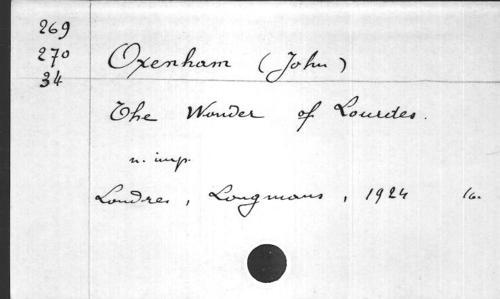 269
270 Oxenham (John)
34
The Wonder of Lourdes.
n. imp.
Londres, Longmans, 1924 16.